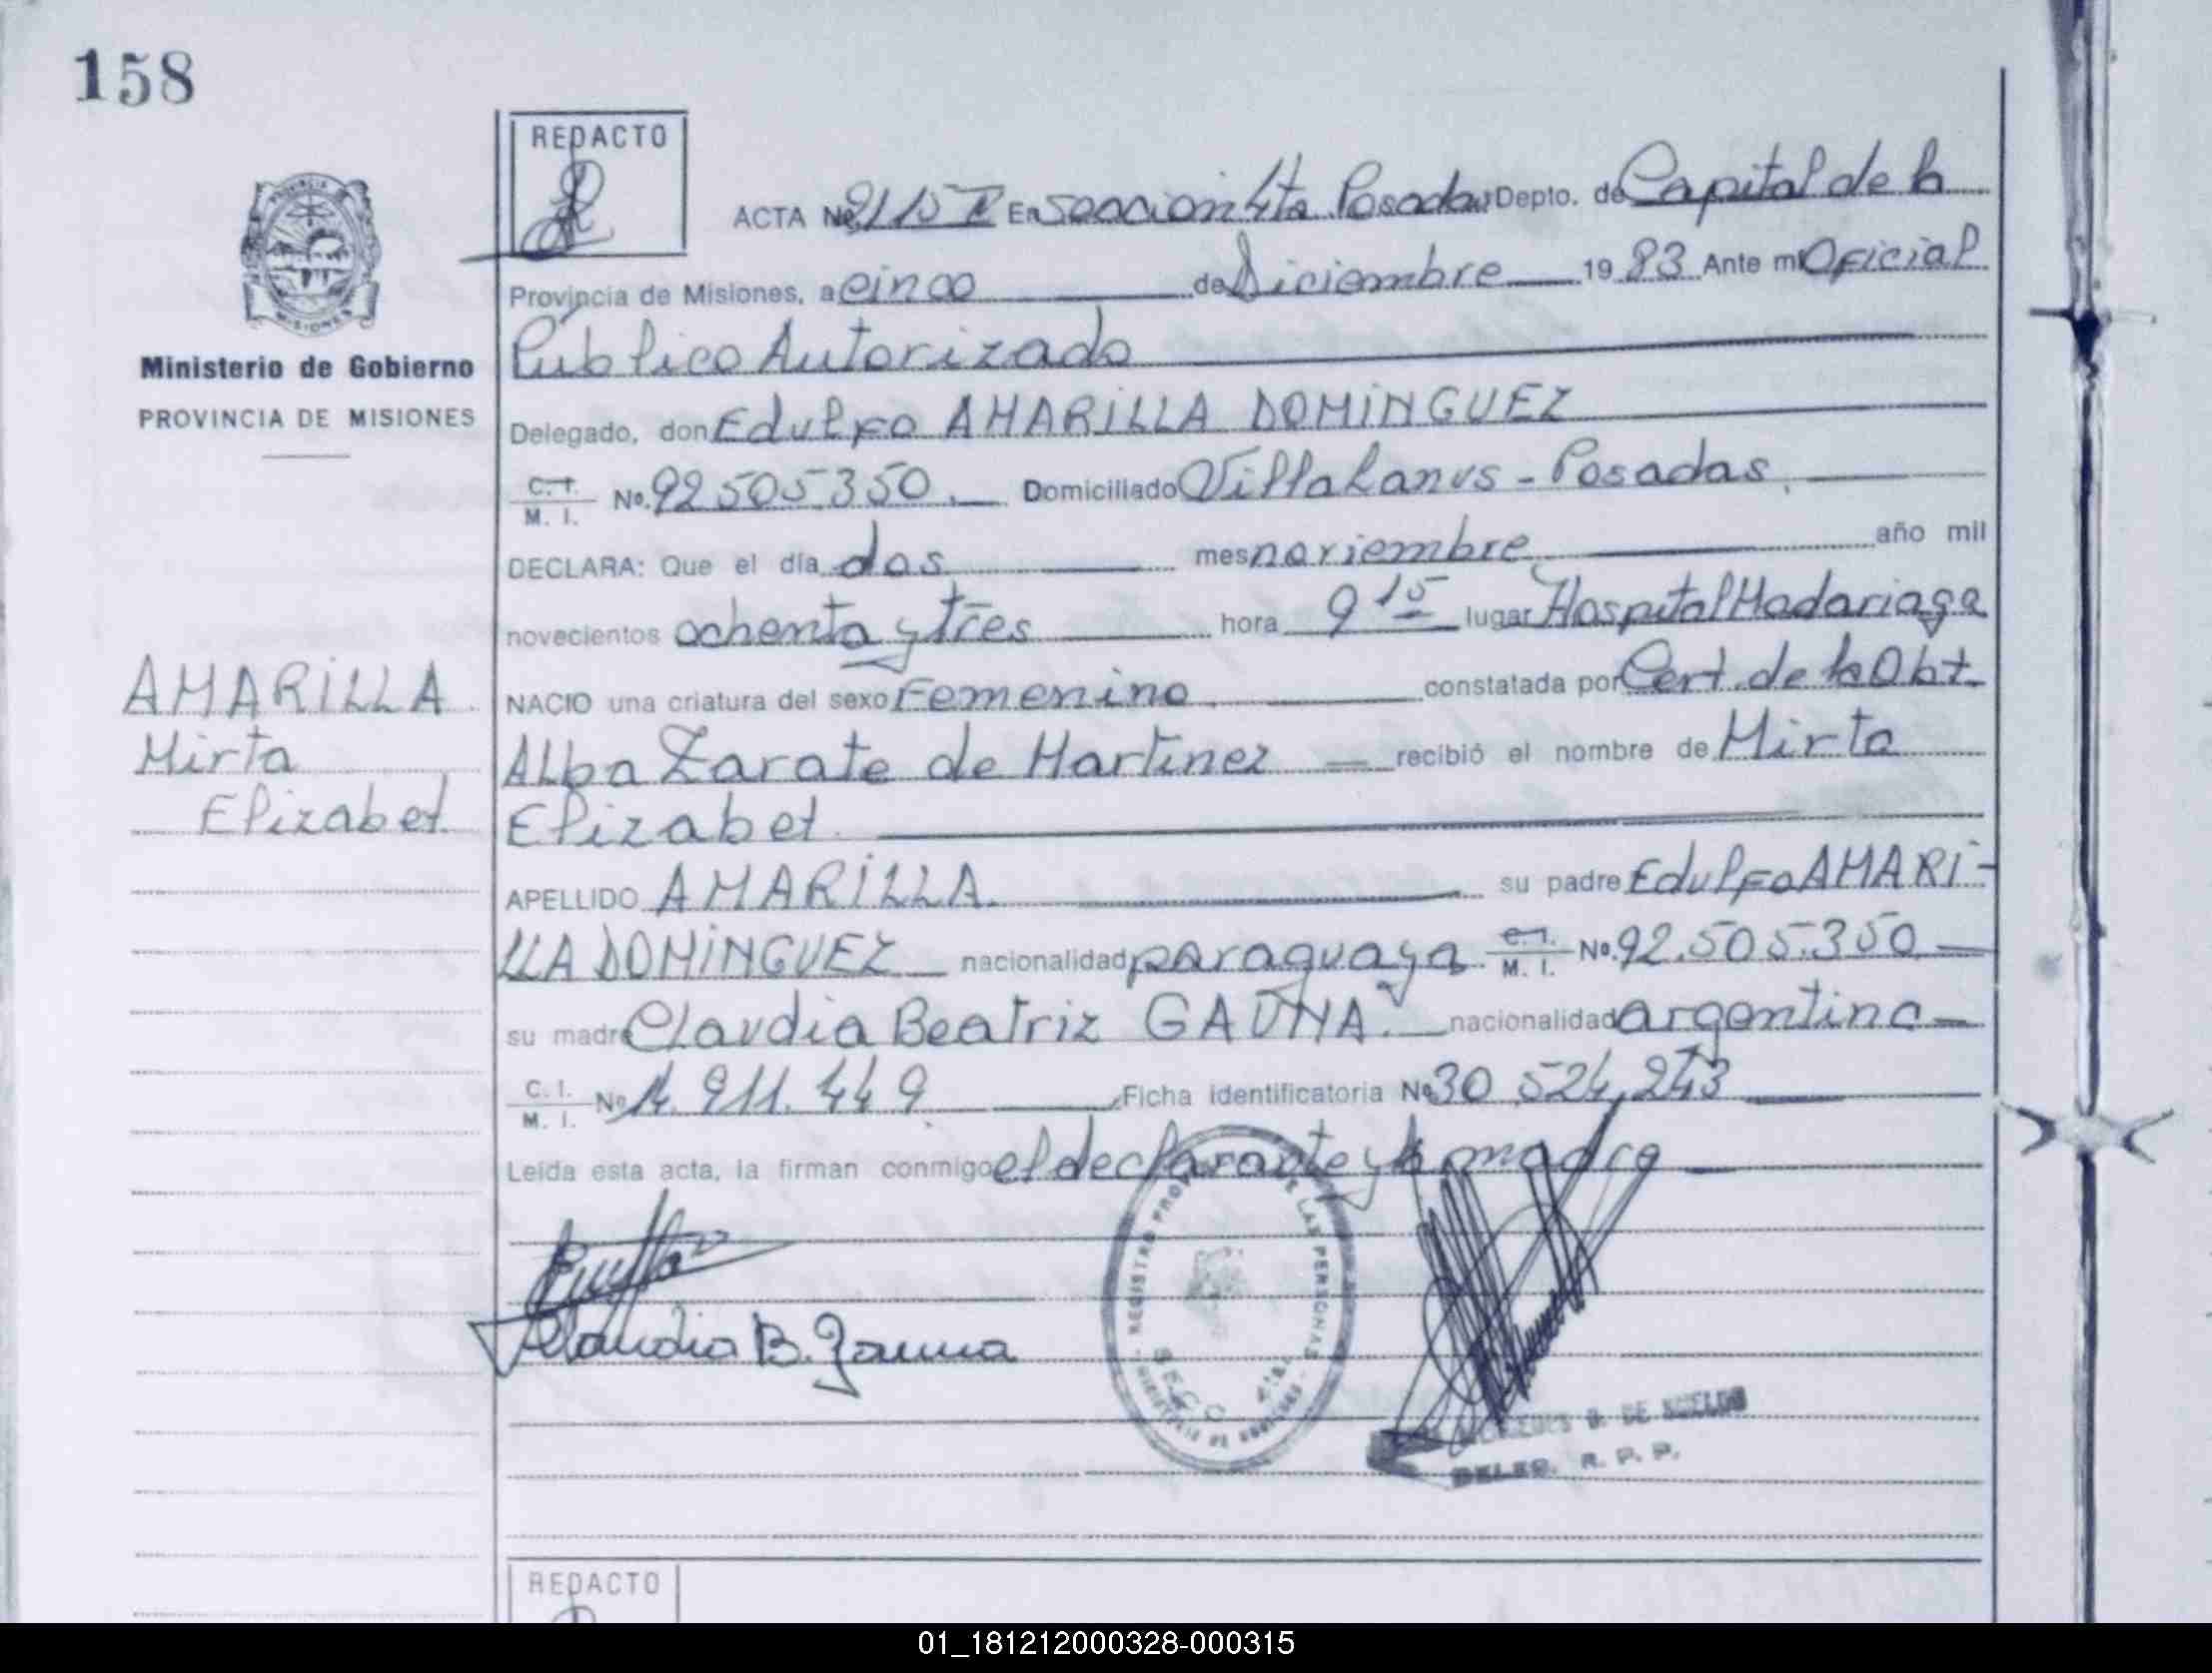 158
REDACTO
ACTA No. 2115 I En seccion 4ta Posadas Depto. de Capital de la
Provincia de Misiones, a cinco de Diciembre 1983 Ante mi Oficial
Público Autorizado
Ministerio de Gobierno
PROVINCIA DE MISIONES
Delegado, don Edulfo AMARILLA DOMINGUEZ
C.I. M. I. No. 92.505.350. Domiciliado Villa Lanus - Posadas.
DECLARA: Que el día dos mes noviembre año mil
novecientos ochenta y tres hora 9 15 lugar Hospital Madariaga
AMARILLA
Mirta
Elizabet
NACIO una criatura del sexo Femenino. constatada por Cert. de la Obt.
Alba Zarate de Martinez recibió el nombre de Mirta
Elizabet.
APELLIDO AMARILLA. su padre Edulfo AMARI-
LLA DOMINGUEZ nacionalidad paraguaya C.I. M. I. No. 92.505.350
su madre Claudia Beatriz GAUNA. nacionalidad argentina
C. I. M. I. No 14.911.449 Ficha identificatoria No 30.524.243
Leída esta acta, la firman conmigo el declarante y la madre
Claudia B. Gauna
REGISTRO PROV. DE LAS PERSONAS
B. DE SUELDO
DELEG. R. P. P.
REDACTO
01_181212000328-000315